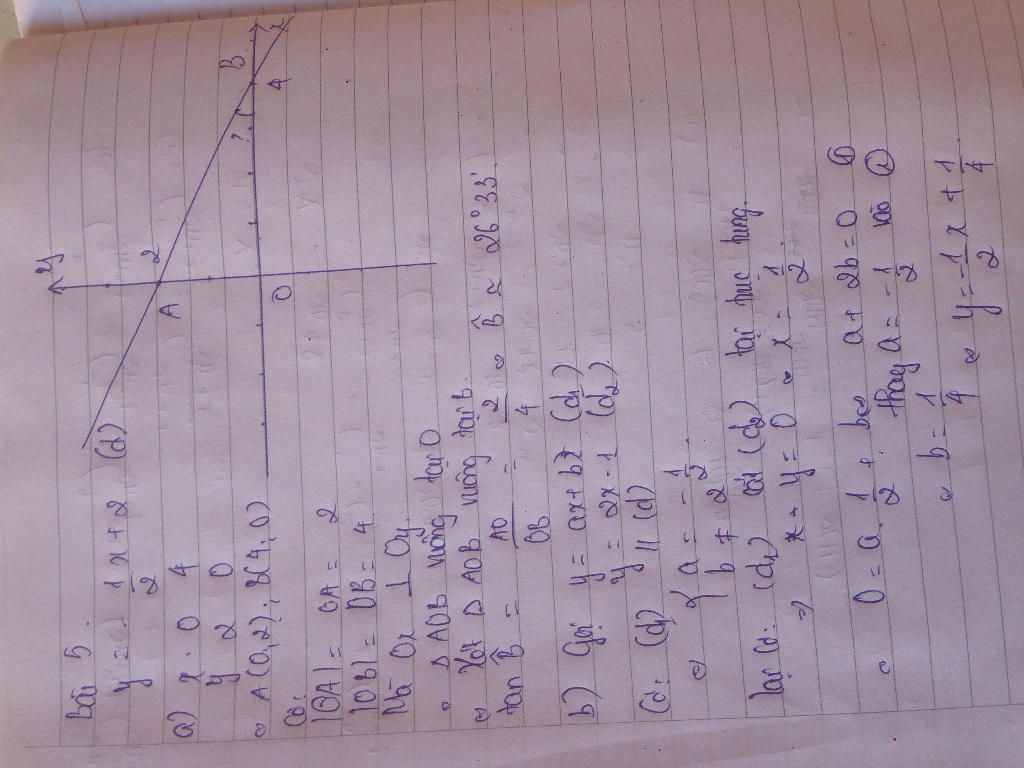 Bài 5.
y = - 1/2 x + 2 (d)
a) x 0 4
y 2 0
A(0,2); B(4,0)
Có:
|OA| = OA = 2
|OB| = OB = 4
Mà Ox ⊥ Oy
Δ AOB vuông tại O
Xét Δ AOB vuông tại B.
tan B̂ = AO/OB = 2/4 B̂ ≈ 26°33'
b) Gọi y = ax + b (d1)
y = 2x - 1 (d2)
Có: (d1) // (d)
{ a = - 1/2
b ≠ 2
Lại có: (d1) cắt (d2) tại trục tung.
⇒ y = 0 x = 1/2
0 = a. 1/2 + b a + 2b = 0 ①
thay a = - 1/2 vào ①
b = 1/4 y = -1/2 x + 1/4
y
2
A
O
B
4
x